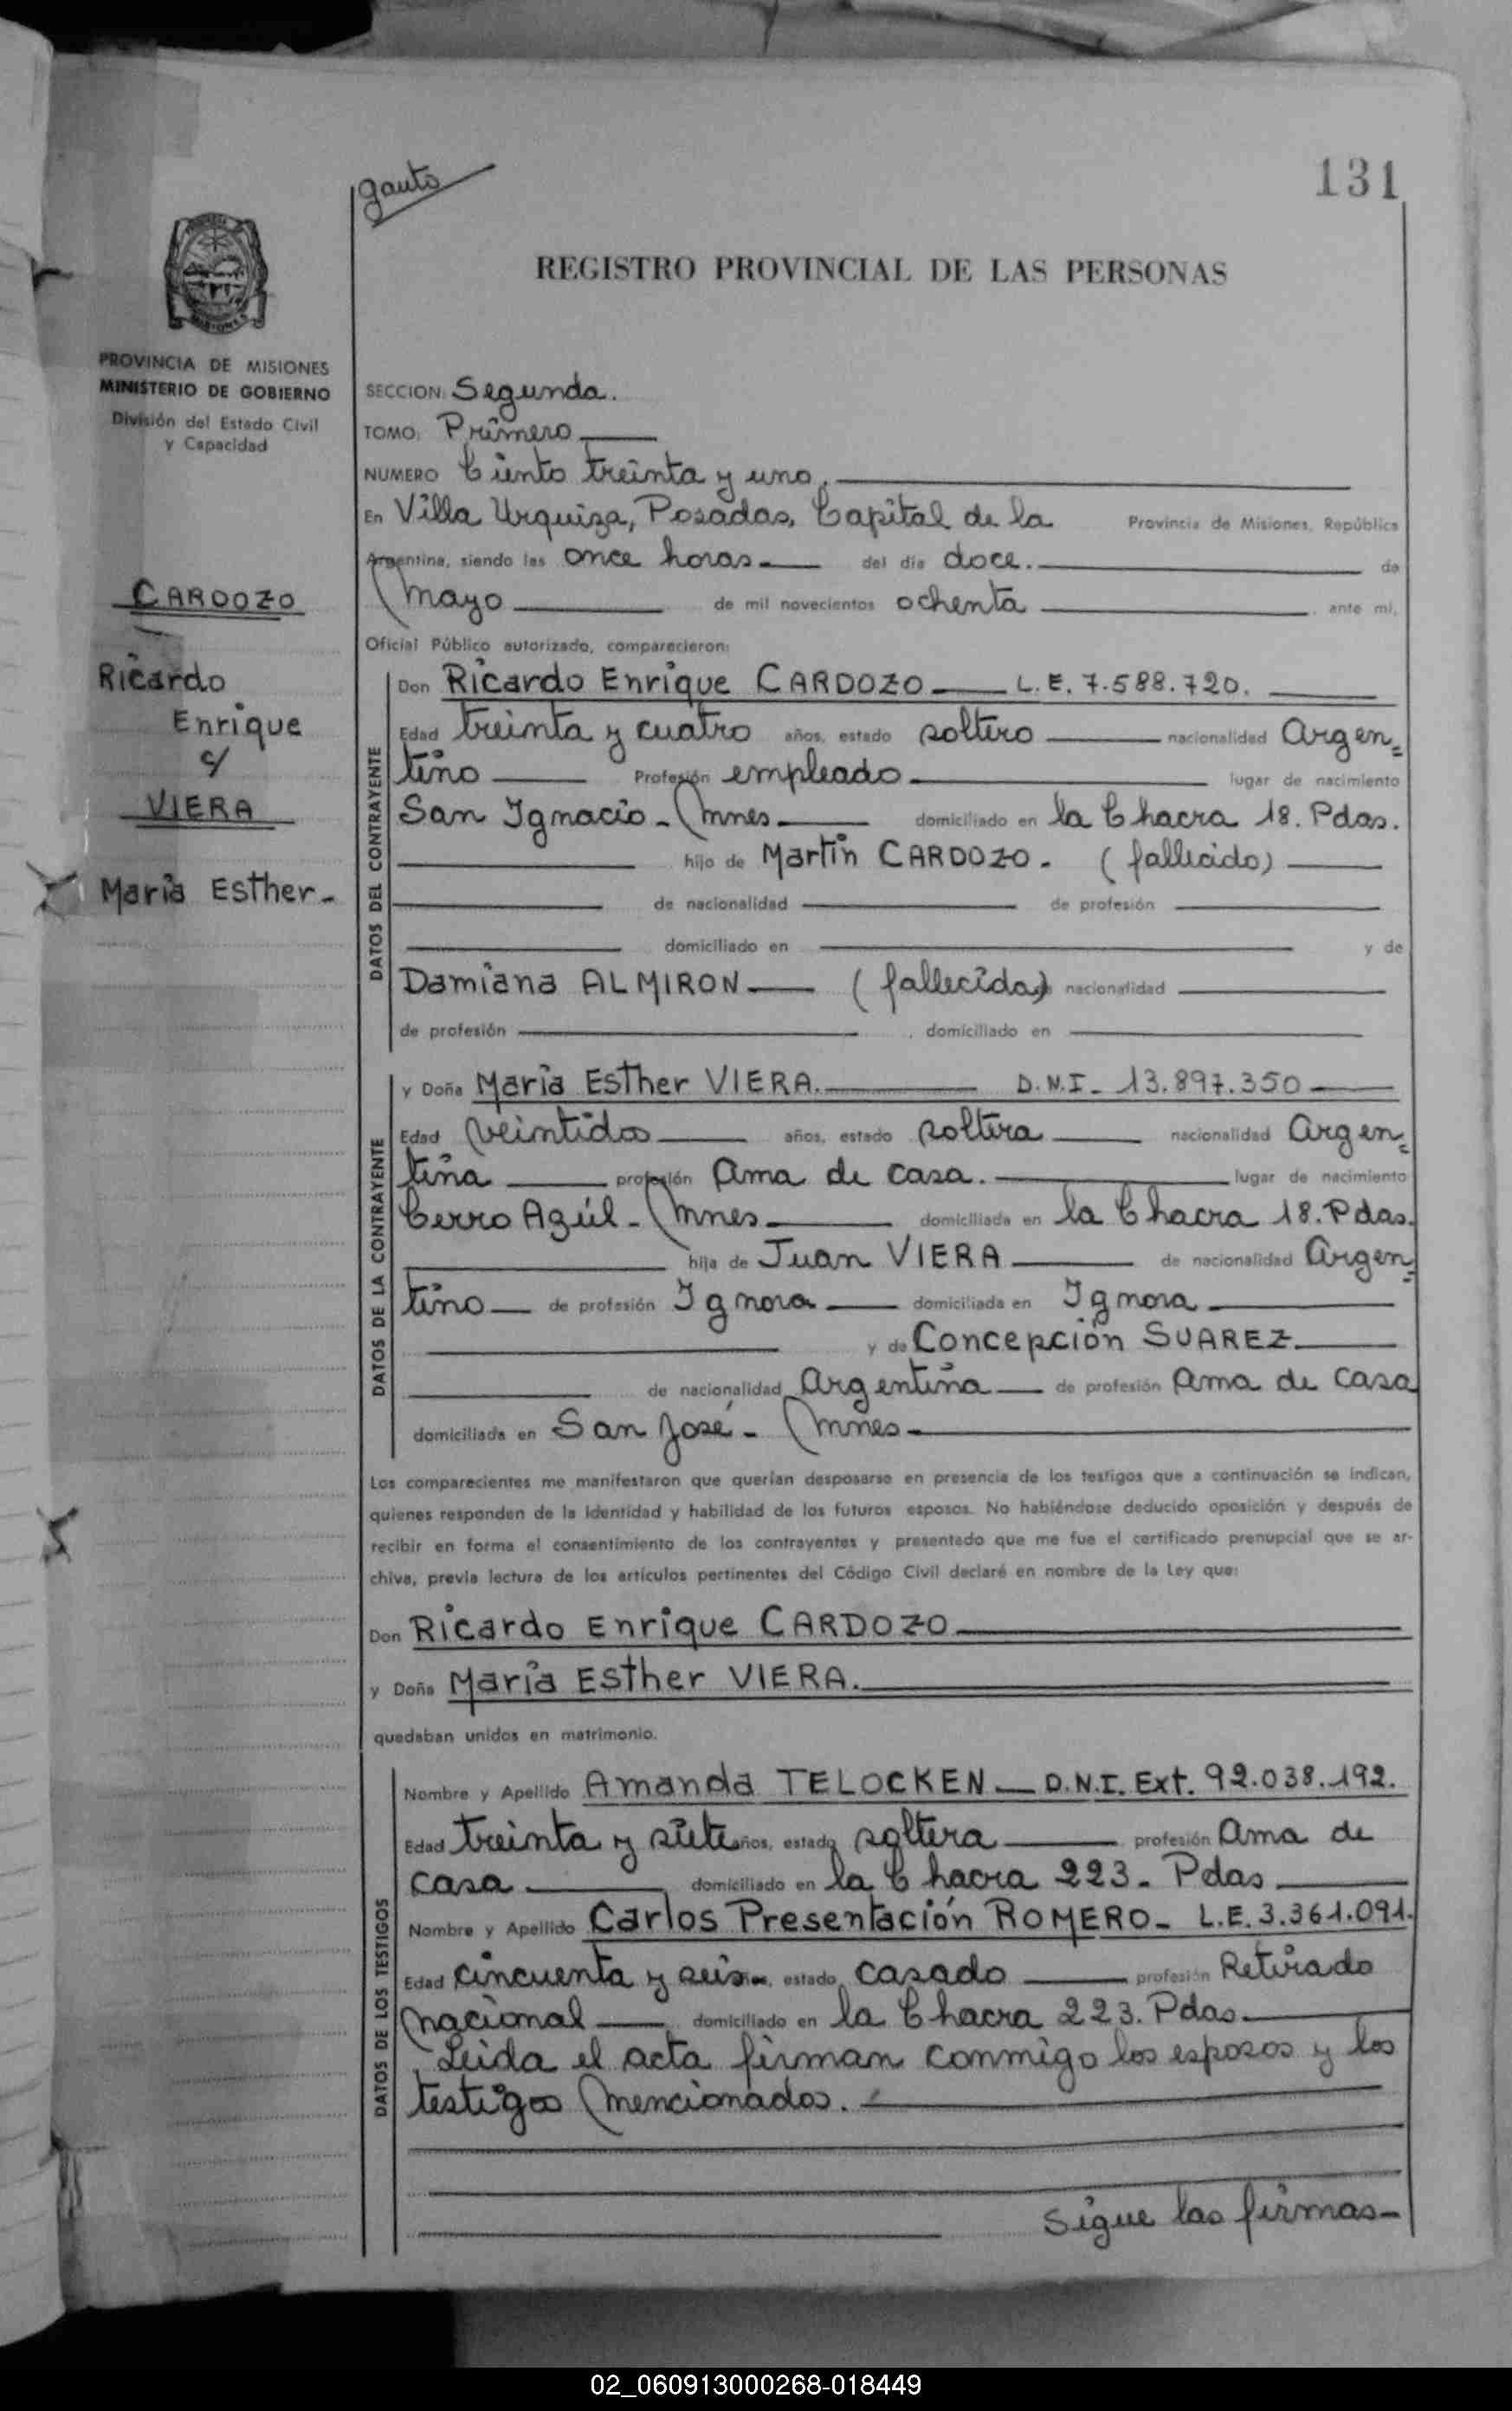 gauto
131
REGISTRO PROVINCIAL DE LAS PERSONAS
PROVINCIA DE MISIONES
MINISTERIO DE GOBIERNO
División del Estado Civil
y Capacidad
CARDOZO
Ricardo
Enrique
c/
VIERA
María Esther-
SECCION: Segunda.
TOMO: Primero
NUMERO Ciento treinta y uno.
En Villa Urquiza, Posadas, Capital de la Provincia de Misiones, República
Argentina, siendo las once horas del día doce. de
mayo de mil novecientos ochenta ante mí,
Oficial Público autorizado, comparecieron:
DATOS DEL CONTRAYENTE
Don Ricardo Enrique CARDOZO L.E. 7.588.720.
Edad treinta y cuatro años, estado soltero nacionalidad Argen=
tino Profesión empleado lugar de nacimiento
San Ignacio - Mnes domiciliado en la Chacra 18. Pdas.
hijo de Martín CARDOZO. (fallecido)
de nacionalidad de profesión
domiciliado en y de
Damiana ALMIRON (fallecida) nacionalidad
de profesión , domiciliado en
DATOS DE LA CONTRAYENTE
y Doña María Esther VIERA. D.N.I- 13.897.350
Edad veintidos años, estado soltera nacionalidad Argen=
tina profesión Ama de casa. lugar de nacimiento
Cerro Azúl- Mnes domiciliada en la Chacra 18. Pdas.
hija de Juan VIERA de nacionalidad Argen=
tino de profesión Ignora domiciliada en Ignora
y de Concepción SUAREZ.
de nacionalidad Argentina de profesión Ama de casa
domiciliada en San José - Mnes
Los comparecientes me manifestaron que querían desposarse en presencia de los testigos que a continuación se indican,
quienes responden de la identidad y habilidad de los futuros esposos. No habiéndose deducido oposición y después de
recibir en forma el consentimiento de los contrayentes y presentado que me fue el certificado prenupcial que se ar-
chiva, previa lectura de los artículos pertinentes del Código Civil declaré en nombre de la Ley que:
Don Ricardo Enrique CARDOZO
y Doña María Esther VIERA.
quedaban unidos en matrimonio.
DATOS DE LOS TESTIGOS
Nombre y Apellido Amanda TELOCKEN D.N.I. Ext. 92.038.192.
Edad treinta y siete años, estado soltera profesión Ama de
casa domiciliado en la Chacra 223. Pdas
Nombre y Apellido Carlos Presentación ROMERO- L.E. 3.361.091.
Edad cincuenta y seis estado casado profesión Retirado
nacional domiciliado en la Chacra 223. Pdas.
Leida el acta firman conmigo los esposos y los
testigos mencionados.
Sigue las firmas-
02_060913000268-018449